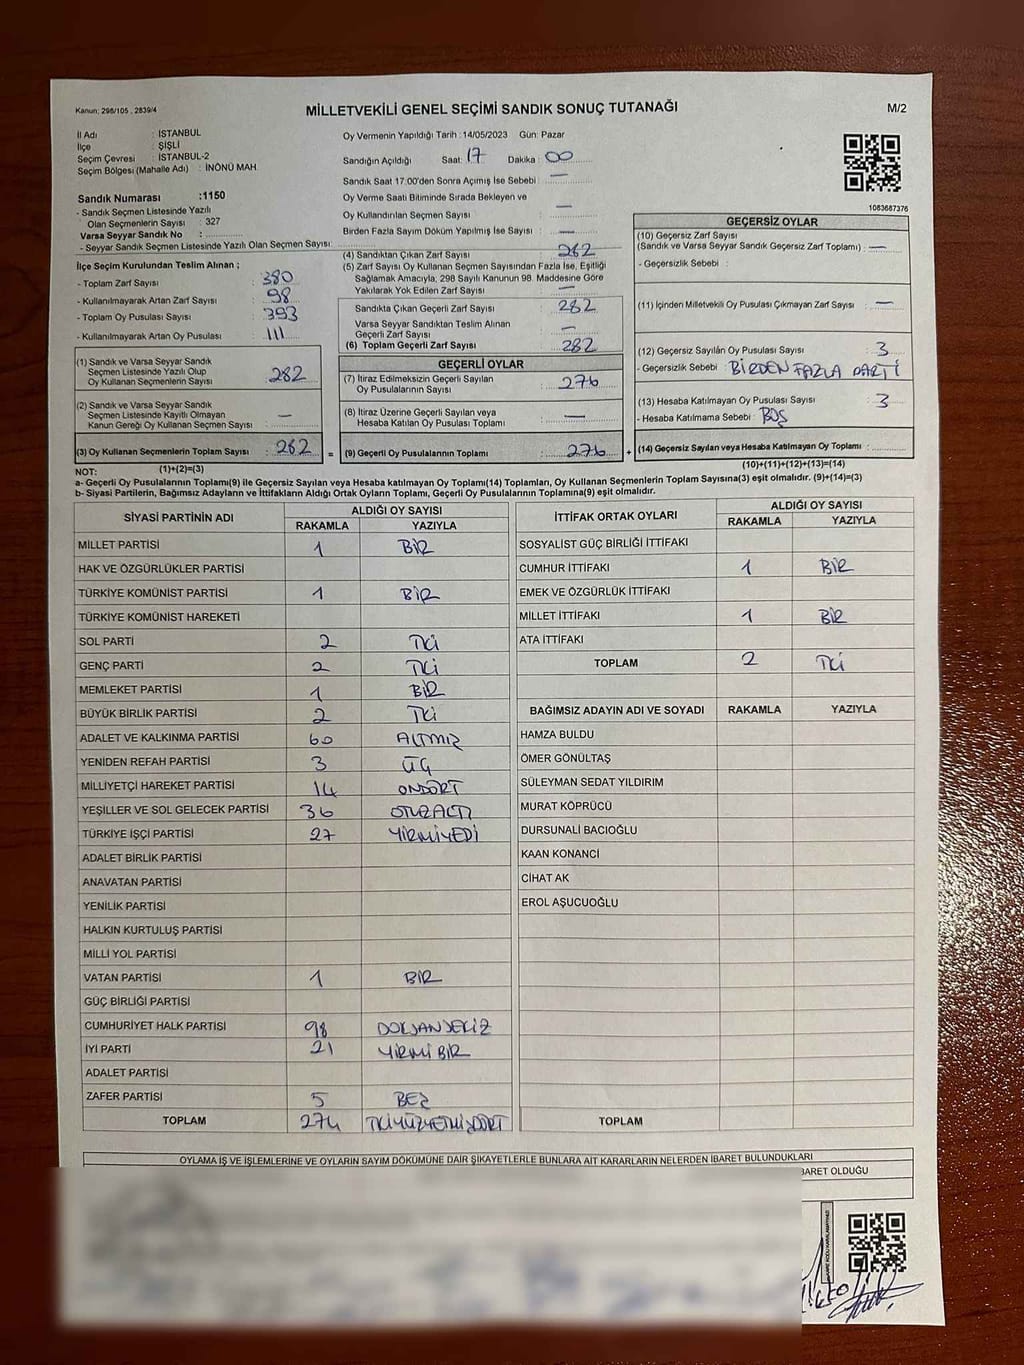 Kanun: 298/105 , 2839/4
MİLLETVEKİLİ GENEL SEÇİMİ SANDIK SONUÇ TUTANAĞI
M/2
İl Adı : İSTANBUL
İlçe : ŞİŞLİ
Seçim Çevresi : İSTANBUL-2
Seçim Bölgesi (Mahalle Adı) : İNÖNÜ MAH
Sandık Numarası :1150
- Sandık Seçmen Listesinde Yazılı
Olan Seçmenlerin Sayısı : 327
Varsa Seyyar Sandık No :
- Seyyar Sandık Seçmen Listesinde Yazılı Olan Seçmen Sayısı:
İlçe Seçim Kurulundan Teslim Alınan ;
- Toplam Zarf Sayısı : 380
- Kullanılmayarak Artan Zarf Sayısı : 98
- Toplam Oy Pusulası Sayısı : 393
- Kullanılmayarak Artan Oy Pusulası : 111
(1) Sandık ve Varsa Seyyar Sandık
Seçmen Listesinde Yazılı Olup
Oy Kullanan Seçmenlerin Sayısı : 282
(2) Sandık ve Varsa Seyyar Sandık
Seçmen Listesinde Kayıtlı Olmayan
Kanun Gereği Oy Kullanan Seçmen Sayısı : —
(3) Oy Kullanan Seçmenlerin Toplam Sayısı : 282
Oy Vermenin Yapıldığı Tarih : 14/05/2023 Gün: Pazar
Sandığın Açıldığı Saat: 17 Dakika : 00
Sandık Saat 17.00'den Sonra Açımış İse Sebebi : —
Oy Verme Saati Bitiminde Sırada Bekleyen ve
Oy Kullandırılan Seçmen Sayısı : —
Birden Fazla Sayım Döküm Yapılmış İse Sayısı : —
(4) Sandıktan Çıkan Zarf Sayısı : 282
(5) Zarf Sayısı Oy Kullanan Seçmen Sayısından Fazla İse, Eşitliği
Sağlamak Amacıyla, 298 Sayılı Kanunun 98. Maddesine Göre
Yakılarak Yok Edilen Zarf Sayısı : —
Sandıkta Çıkan Geçerli Zarf Sayısı : 282
Varsa Seyyar Sandıktan Teslim Alınan
Geçerli Zarf Sayısı : —
(6) Toplam Geçerli Zarf Sayısı : 282
GEÇERLİ OYLAR
(7) İtiraz Edilmeksizin Geçerli Sayılan
Oy Pusulalarının Sayısı : 276
(8) İtiraz Üzerine Geçerli Sayılan veya
Hesaba Katılan Oy Pusulası Toplamı : —
= (9) Geçerli Oy Pusulalarının Toplamı : 276 +
1083687376
GEÇERSİZ OYLAR
(10) Geçersiz Zarf Sayısı
(Sandık ve Varsa Seyyar Sandık Geçersiz Zarf Toplamı) : —
- Geçersizlik Sebebi :
(11) İçinden Milletvekili Oy Pusulası Çıkmayan Zarf Sayısı : —
(12) Geçersiz Sayılan Oy Pusulası Sayısı : 3
- Geçersizlik Sebebi : BİRDEN FAZLA PARTİ
(13) Hesaba Katılmayan Oy Pusulası Sayısı : 3
- Hesaba Katılmama Sebebi : BOŞ
(14) Geçersiz Sayılan veya Hesaba Katılmayan Oy Toplamı :
NOT: (1)+(2)=(3) (10)+(11)+(12)+(13)=(14)
a- Geçerli Oy Pusulalarının Toplamı(9) ile Geçersiz Sayılan veya Hesaba katılmayan Oy Toplamı(14) Toplamları, Oy Kullanan Seçmenlerin Toplam Sayısına(3) eşit olmalıdır. (9)+(14)=(3)
b- Siyasi Partilerin, Bağımsız Adayların ve İttifakların Aldığı Ortak Oyların Toplamı, Geçerli Oy Pusulalarının Toplamına(9) eşit olmalıdır.
SİYASİ PARTİNİN ADI ALDIĞI OY SAYISI
RAKAMLA YAZIYLA
MİLLET PARTİSİ 1 BİR
HAK VE ÖZGÜRLÜKLER PARTİSİ
TÜRKİYE KOMÜNİST PARTİSİ 1 BİR
TÜRKİYE KOMÜNİST HAREKETİ
SOL PARTİ 2 İKİ
GENÇ PARTİ 2 İKİ
MEMLEKET PARTİSİ 1 BİR
BÜYÜK BİRLİK PARTİSİ 2 İKİ
ADALET VE KALKINMA PARTİSİ 60 ALTMIŞ
YENİDEN REFAH PARTİSİ 3 ÜÇ
MİLLİYETÇİ HAREKET PARTİSİ 14 ONDÖRT
YEŞİLLER VE SOL GELECEK PARTİSİ 36 OTUZALTI
TÜRKİYE İŞÇİ PARTİSİ 27 YİRMİYEDİ
ADALET BİRLİK PARTİSİ
ANAVATAN PARTİSİ
YENİLİK PARTİSİ
HALKIN KURTULUŞ PARTİSİ
MİLLİ YOL PARTİSİ
VATAN PARTİSİ 1 BİR
GÜÇ BİRLİĞİ PARTİSİ
CUMHURİYET HALK PARTİSİ 98 DOKSANSEKİZ
İYİ PARTİ 21 YİRMİ BİR
ADALET PARTİSİ
ZAFER PARTİSİ 5 BEŞ
TOPLAM 274 İKİYÜZYETMİŞDÖRT
İTTİFAK ORTAK OYLARI ALDIĞI OY SAYISI
RAKAMLA YAZIYLA
SOSYALİST GÜÇ BİRLİĞİ İTTİFAKI
CUMHUR İTTİFAKI 1 BİR
EMEK VE ÖZGÜRLÜK İTTİFAKI
MİLLET İTTİFAKI 1 BİR
ATA İTTİFAKI
TOPLAM 2 İKİ
BAĞIMSIZ ADAYIN ADI VE SOYADI RAKAMLA YAZIYLA
HAMZA BULDU
ÖMER GÖNÜLTAŞ
SÜLEYMAN SEDAT YILDIRIM
MURAT KÖPRÜCÜ
DURSUNALİ BACIOĞLU
KAAN KONANCİ
CİHAT AK
EROL AŞUCUOĞLU
TOPLAM
OYLAMA İŞ VE İŞLEMLERİNE VE OYLARIN SAYIM DÖKÜMÜNE DAİR ŞİKAYETLERLE BUNLARA AİT KARARLARIN NELERDEN İBARET BULUNDUKLARI
BARET OLDUĞU